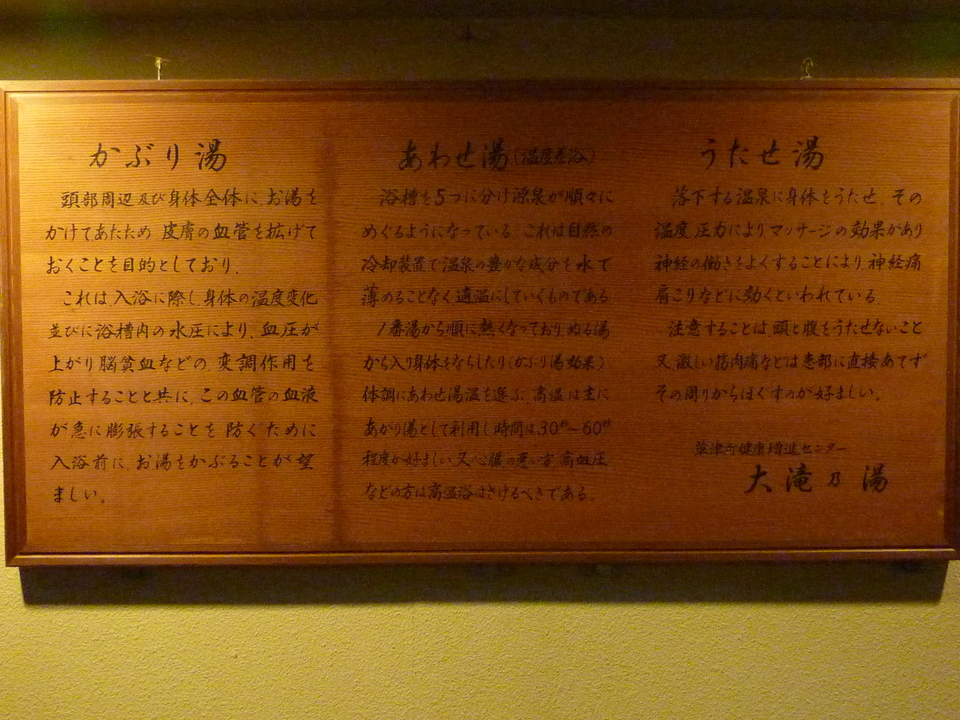 かぶり湯
頭部周辺及び身体全体に、お湯を
かけてあたため 皮膚の血管を拡げて
おくことを目的としており、
これは入浴に際し身体の温度変化
並びに浴槽内の水圧により、血圧が
上がり脳貧血などの 変調作用を
防止することと共に、この血管の血液
が急に膨張することを 防ぐために
入浴前に、お湯をかぶることが望
ましい。
あわせ湯(温度差浴)
浴槽を5つに分け源泉が順々に
めぐるようになっている これは自然の
冷却装置で温泉の豊かな成分を水で
薄めることなく適温にしていくものである
1番湯から順に熱くなっており、ぬる湯
から入り身体をならしたり(かぶり湯効果)
体調にあわせ湯温を選ぶ、高温は主に
あがり湯として利用し時間は30秒〜60秒
程度が好ましい 又心臓の悪い方 高血圧
などの方は高温浴はさけるべきである。
うたせ湯
落下する温泉に身体をうたせ、その
温度、圧力により、マッサージの効果があり
神経の働きをよくすることにより、神経痛
肩こりなどに効くといわれている。
注意することは頭と腹をうたせないこと
又、激しい筋肉痛などは患部に直接あてず
その周りからほぐすのが好ましい。
草津町健康増進センター
大滝乃湯